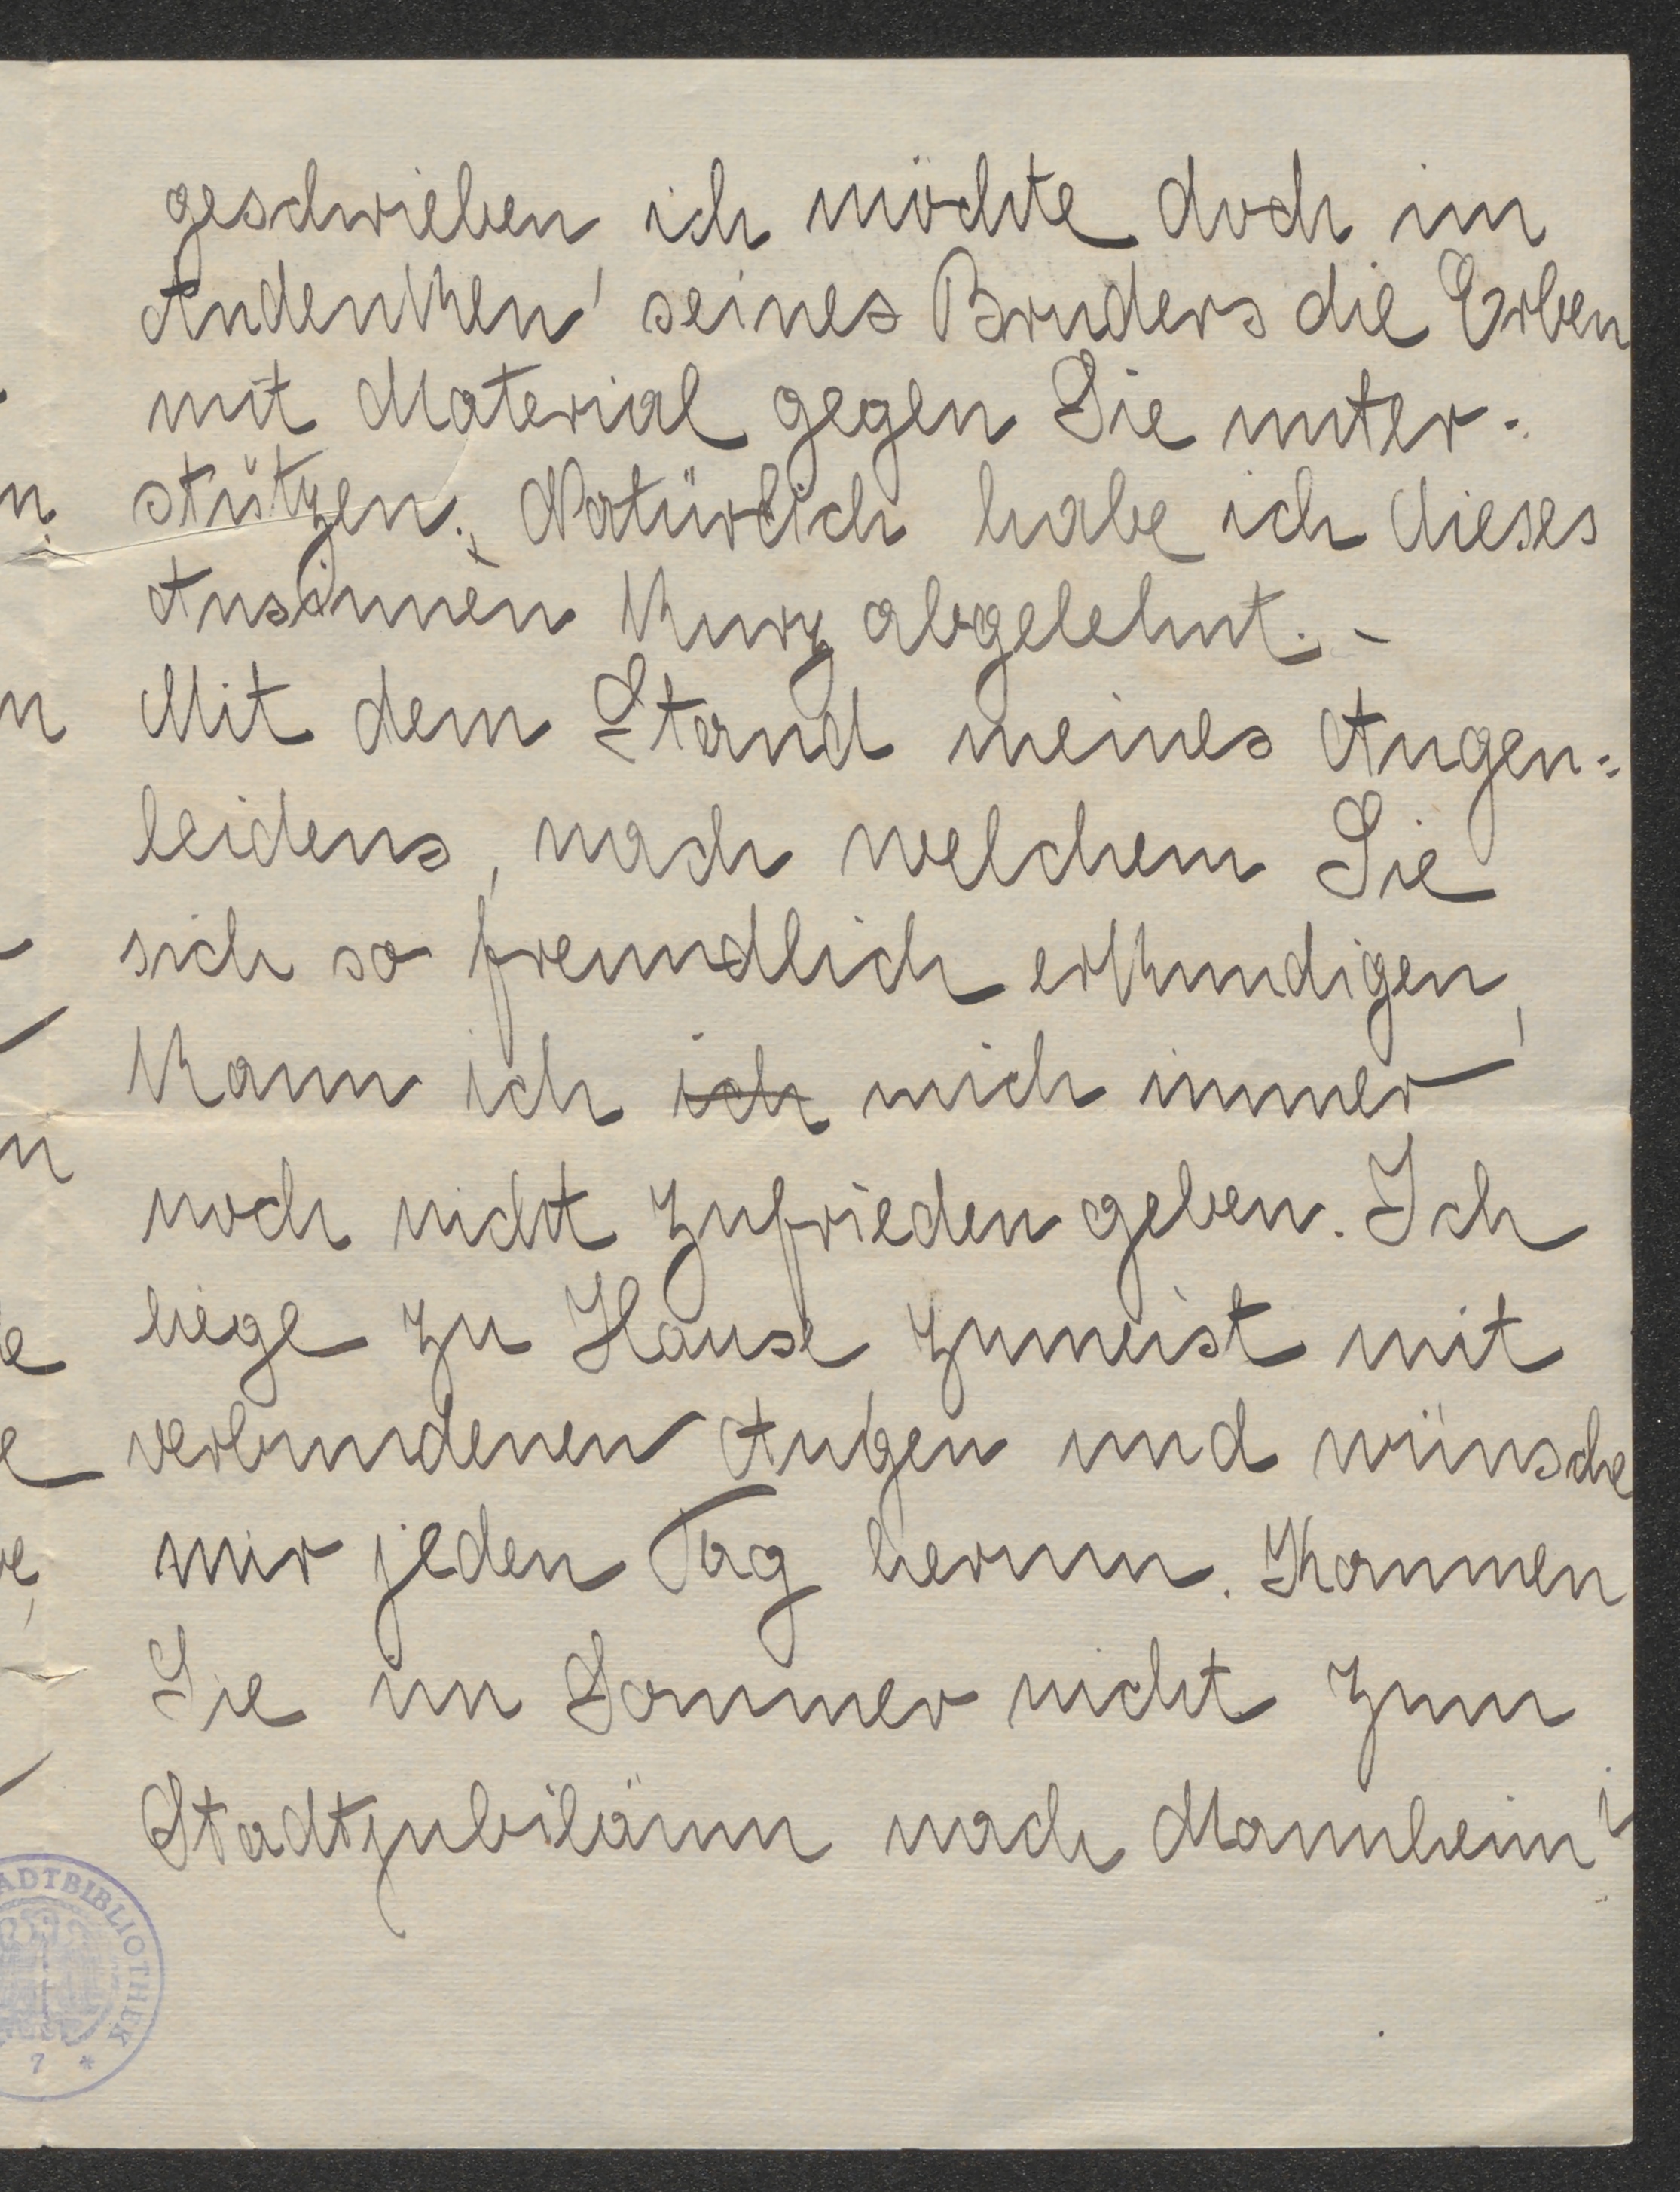 geschrieben ich möchte doch im
Andenken seines Bruders die Erben
mit Material gegen Sie unter-
stützen. Natürlich habe ich dieses
Ansinnen kurz abgelehnt. -
Mit dem Stand meines Augen=
leidens, nach welchem Sie
sich so freundlich erkundigen,
kann ich ich mich immer
noch nicht zufrieden geben. Ich
liege zu Hause, zumeist mit
verbundenen Augen und wünsche
mir jeden Tag herum. Kommen
Sie im Sommer nicht zum
Stadtjubiläum nach Mannheim?
STADTBIBLIOTHEK
7 *